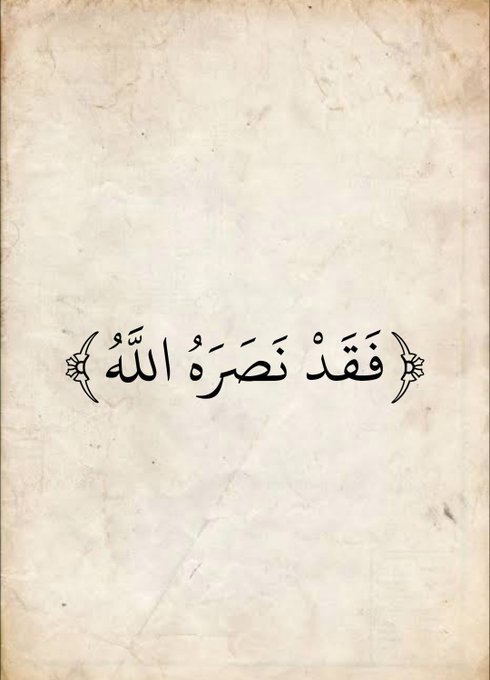 ﴿فَقَدْ نَصَرَهُ اللَّهُ﴾